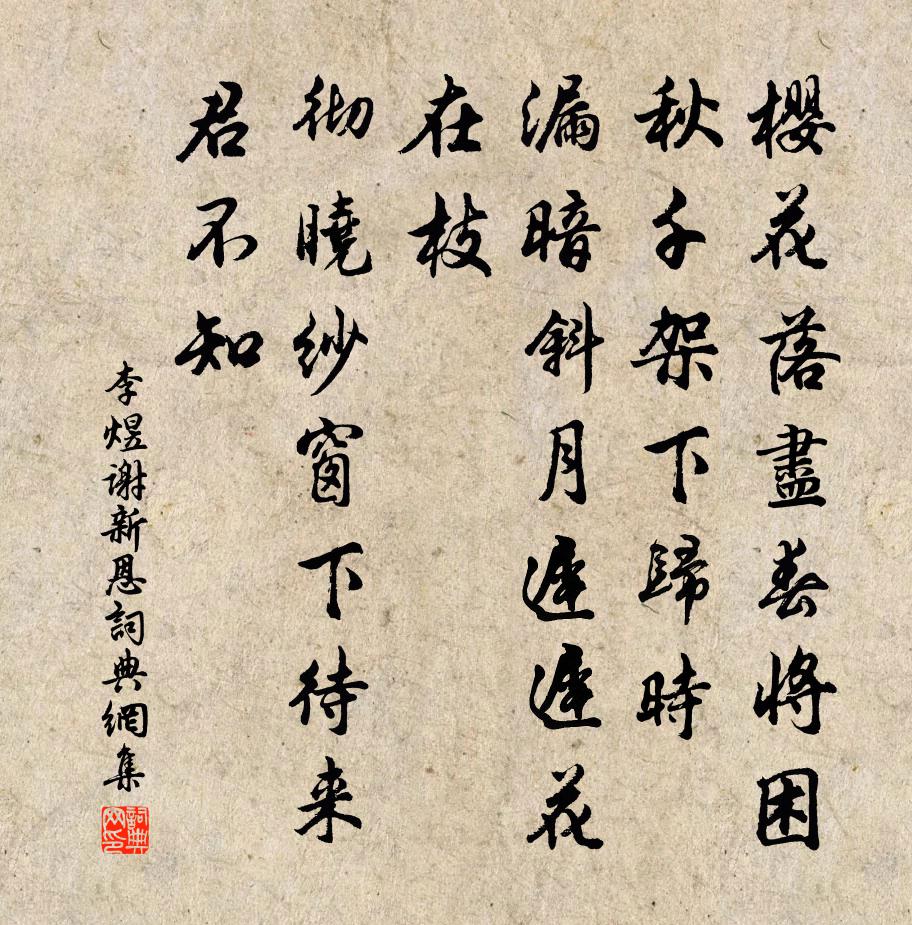 櫻花落盡春將困
秋千架下歸時
漏暗斜月遲遲花
在枝
彻曉紗窗下待来
君不知
李煜谢新恩詞典網集
詞典网印